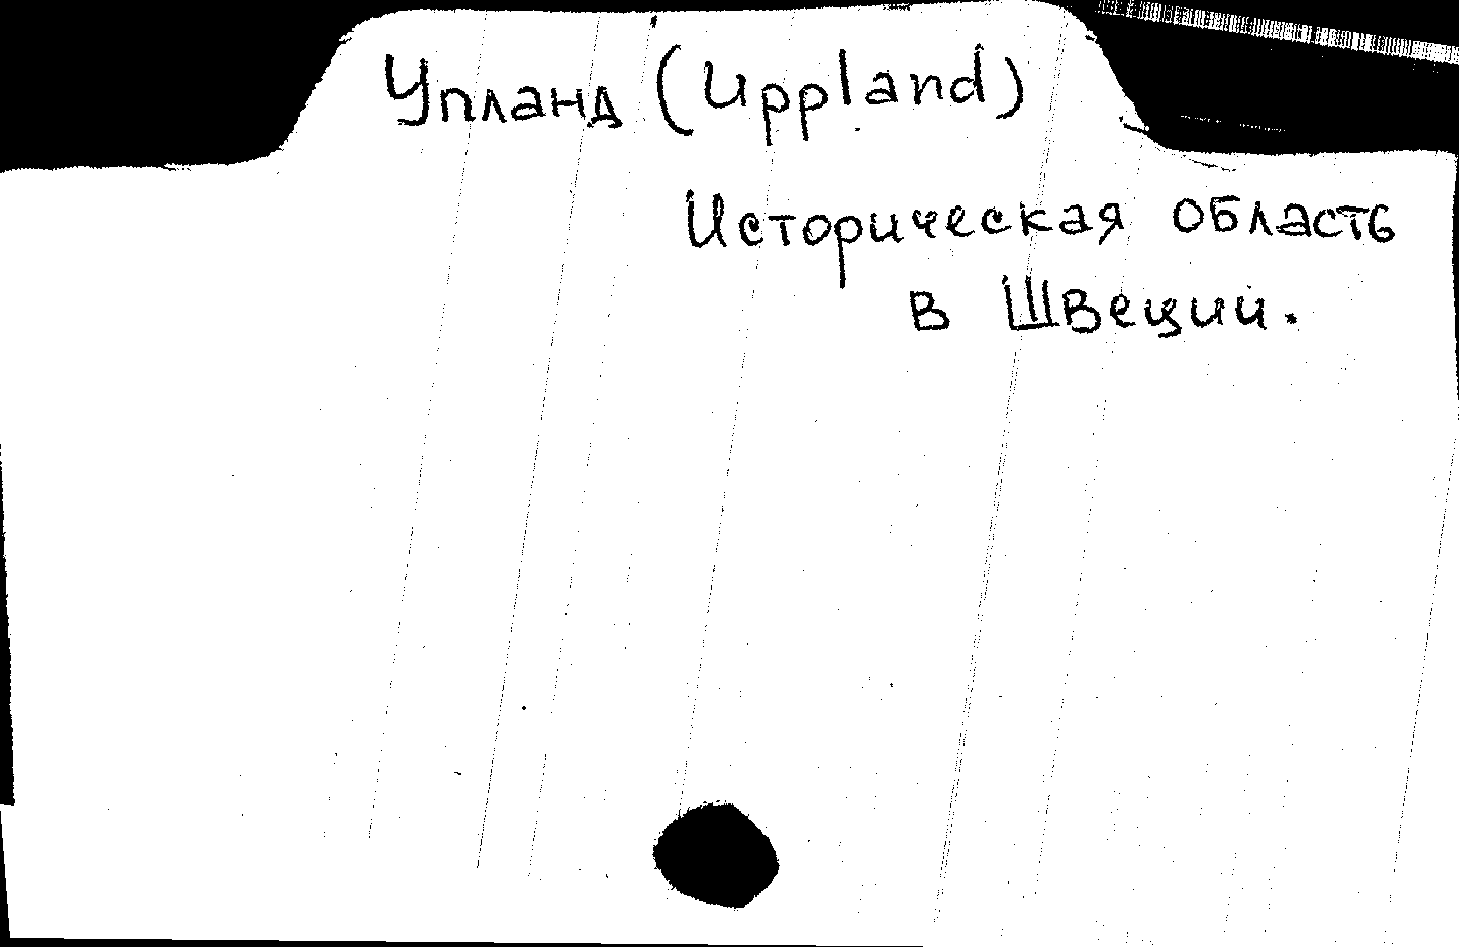 Упланд (Uppland)
Историческая область
в Швеции.